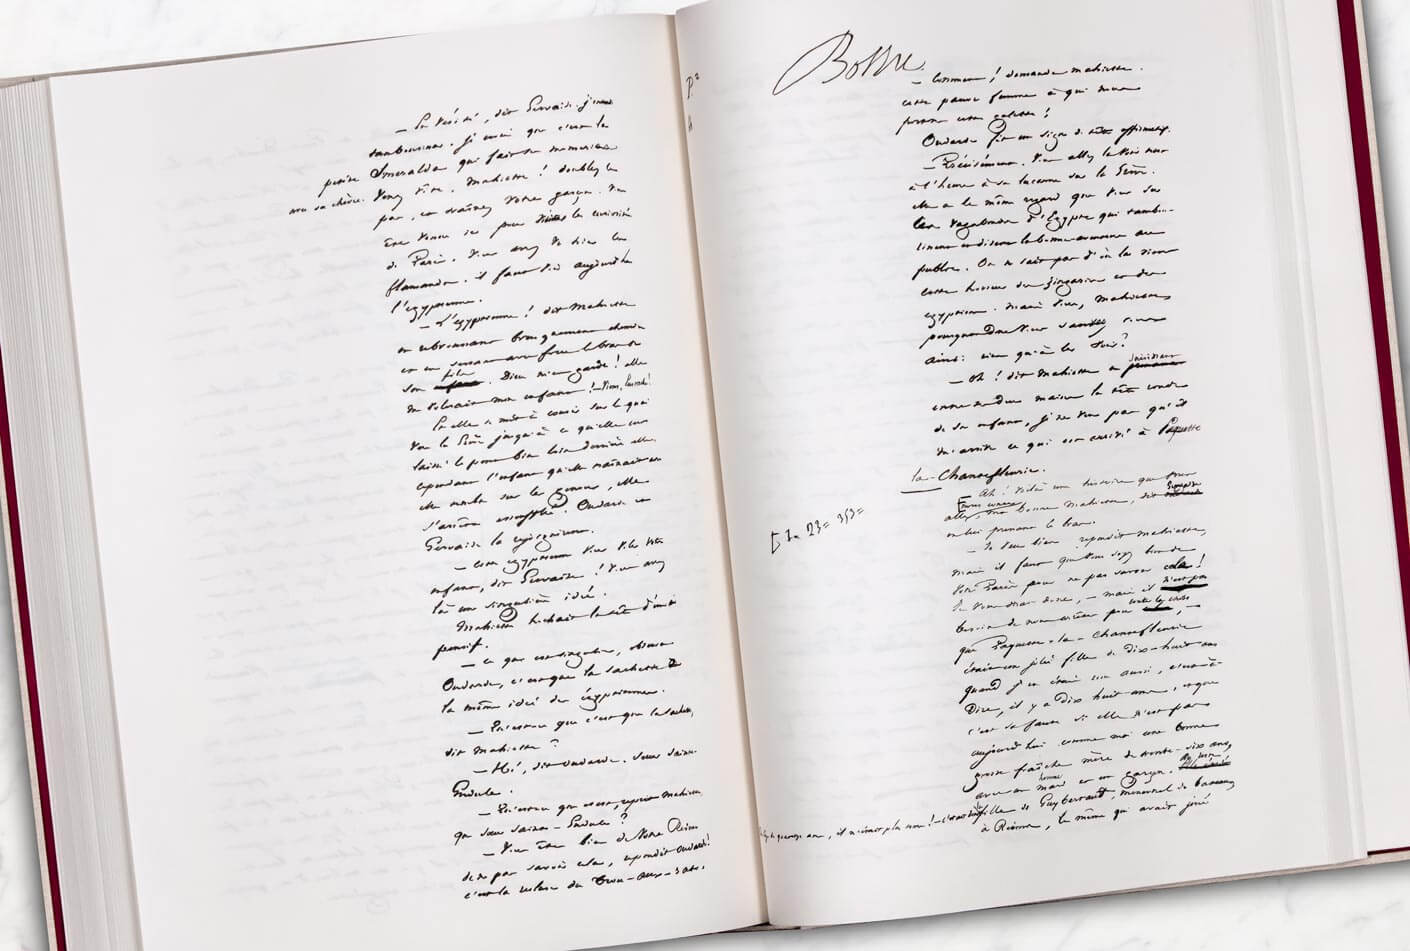 — En vérité, dit Gervaise, j'entends
tambouriner. Je crois que c'est la
petite Smeralda qui fait ses momeries
avec sa chèvre. Venez vite, Mahiette ! doublez le
pas, et traînez votre garçon. Vous
êtes venue ici pour visiter les curiosités
de Paris. Vous avez vu hier les
flamands. il faut voir aujourd'hui
l'égyptienne.
— L'égyptienne ! dit Mahiette
en rebroussant brusquement chemin
et en serrant avec force le bras de
fils
son enfant. Dieu m'en garde ! elle
me volerait mon enfant ! – Viens, Eustache !
Et elle se mit à courir sur le quai
vers la Grève jusqu'à ce qu'elle eut
laissé le pont bien loin derrière elle.
cependant l'enfant qu'elle traînait
tomba sur les genoux, elle
s'arrêta essoufflée. Oudarde et
Gervaise la rejoignirent.
— Cette égyptienne vous voler votre
enfant, dit Gervaise ! Vous avez
là une singulière idée.
Mahiette hochait la tête d'un air
pensif.
— Ce qui est singulier, observa
Oudarde, c'est que la sachette a
la même idée des égyptiennes.
— Qu'est-ce que c'est que la sachette,
dit Mahiette ?
— Hé, dit Oudarde. Sœur
Gudule.
— Qu'est-ce que c'est, reprit Mahiette,
que sœur Gudule ?
— Vous êtes bien de votre Reims
de ne pas savoir cela, répondit Oudarde !
c'est la recluse du Trou-aux-rats.
— Comment ! demanda Mahiette.
cette pauvre femme à qui nous
portons cette galette !
Oudarde fit un signe de tête affirmatif.
— Précisément. Vous allez la voir
à l'heure à sa lucarne sur la Grève.
elle a le même regard que vous sur
ces vagabonds d'Égypte qui tambou-
rinent et disent la bonne aventure au
public. On ne sait pas d'où lui vient
cette horreur des zingari et des
égyptiens. mais vous, Mahiette,
pourquoi donc vous sauvez-vous
ainsi, rien qu'à les voir ?
saisissant
— Oh ! dit Mahiette en
entre ses deux mains la tête ronde
de son enfant, je ne veux pas qu'il
m'arrive ce qui est arrivé à Paquette
la-Chantefleurie.
— Ah ! voilà une histoire que vous
allez, ma bonne Mahiette, dit
en lui prenant le bras.
— Je veux bien, répondit Mahiette,
mais il faut que vous soyez bien de
votre Paris pour ne pas savoir cela !
Je vous dirai donc, – mais il n'est pas
besoin de nous arrêter pour –
que Paquette-la-Chantefleurie
était une jolie fille de dix-huit ans
quand j'en étais une aussi, c'est-à-
dire, il y a dix-huit ans, et que
c'est sa faute si elle n'est pas
aujourd'hui comme moi une bonne
grosse fraîche mère de trente-six ans,
avec un homme et un garçon.
fille de Guybertaut, ménestrel de bateaux
à Reims, le même qui avait joué